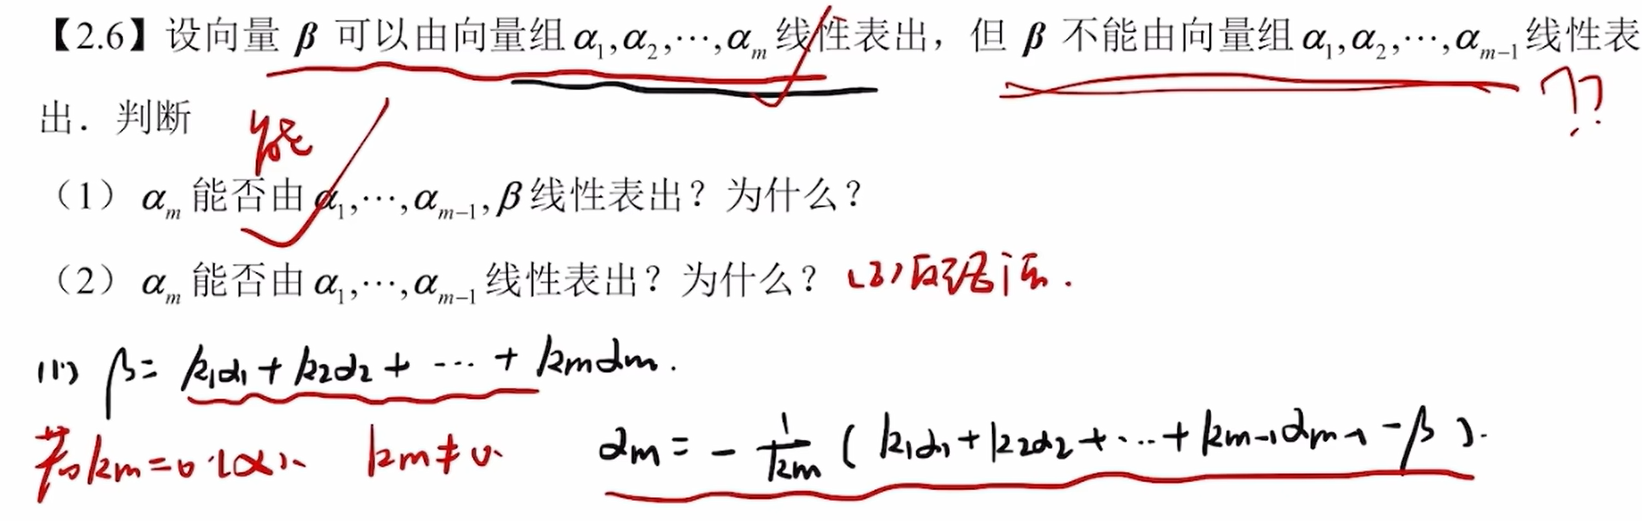 【2.6】设向量 β 可以由向量组 α₁,α₂,⋯,αₘ 线性表出，但 β 不能由向量组 α₁,α₂,⋯,αₘ₋₁ 线性表
出．判断
能
（1）αₘ 能否由 α₁,⋯,αₘ₋₁,β 线性表出？为什么？
（2）αₘ 能否由 α₁,⋯,αₘ₋₁ 线性表出？为什么？ (2)反证法.
(1) β = k₁α₁ + k₂α₂ + ⋯ + kₘαₘ.
若 kₘ=0.(×). kₘ≠0. αₘ = - 1/kₘ ( k₁α₁ + k₂α₂ + ⋯ + kₘ₋₁αₘ₋₁ - β ).